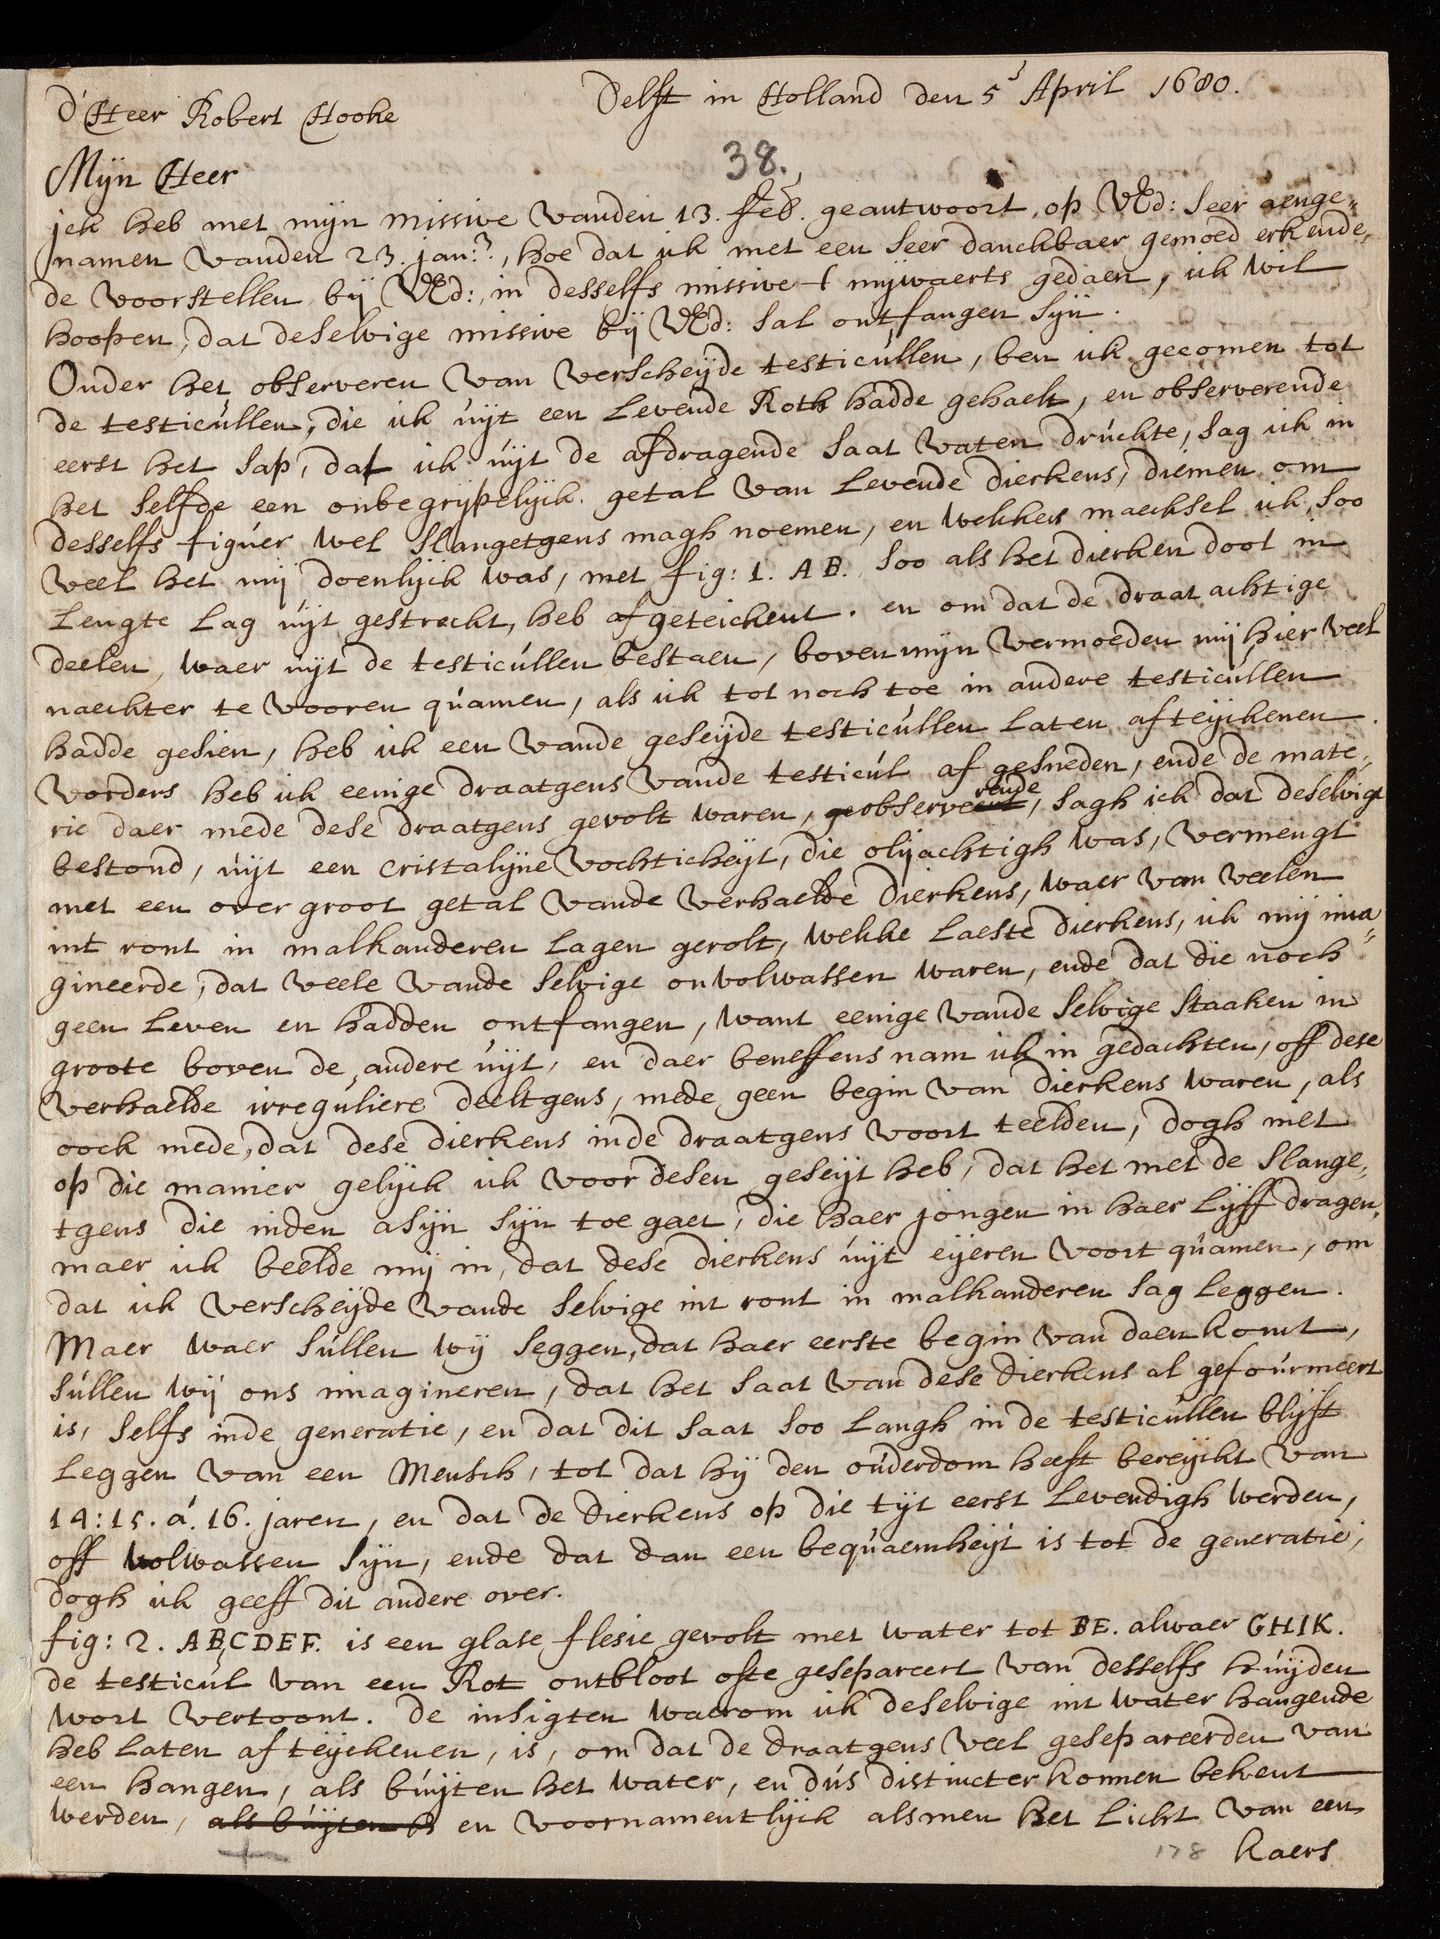 Delft in Holland den 5 April 1680.
d'Heer Robert Hooke
38.
Mijn Heer
jck heb met mijn missive vanden 13. feb. geantwoort, op VEd: seer aenge„
namen vanden 23. jan., hoe dat ik met een seer danckbaer gemoed erkende,
de voorstellen bij VEd: in desselfs missive t mijwaerts gedaen, ik wil
hoopen, dat deselvige missive bij VEd: sal ontfangen sijn.
Onder het observeren van verscheijde testicullen, ben ik gecomen tot
de testicullen, die ik uijt een Levende Roth hadde gehaelt, en observerende
eerst het sap, dat ik uijt de afdragende saat vaten druckte, sag ik in
het selfde een onbegrijpelijck getal van Levende dierkens, diemen om
desselfs figuer wel slangetgens magh noemen, en welkers maecksel ik, soo
veel het mij doenlijck was, met fig: 1. AB. soo als het dierken doot in
Lengte Lag uijt gestreckt, heb afgeteickent. en om dat de draatachtige
deelen, waer uijt de testicullen bestaen, boven mijn vermoeden mij hier veel
naeckter te vooren quamen, als ik tot noch toe in andere testicullen
hadde gesien, heb ik een vande geseijde testicullen Laten afteijckenen.
Vorders heb ik eenige draatgens vande testicul af gesneden, ende de mate„
rie daer mede dese draatgens gevolt waren, geobserveert rende, sagh ick dat deselvige
bestond, uijt een cristalijne vochticheijt, die olijachtigh was, vermengt
met een over groot getal vande verhaelde dierkens, waer van veelen
int ront in malkanderen Lagen gerolt, welke Laeste dierkens, ik mij ima„
gineerde, dat veele vande selvige onvolwassen waren, ende dat die noch
geen Leven en hadden ontfangen, want eenige vande selvige staaken in
groote boven de andere uijt, en daer beneffens nam ik in gedachten, off dese
verhaelde irreguliere deeltgens, mede geen begin van dierkens waren, als
oock mede, dat dese dierkens inde draatgens voort teelden, dogh niet
op die manier gelijck ik voor desen geseijt heb, dat het met de slange„
tgens die inden asijn sijn toe gaet, die haer jongen in haer Lijff dragen,
maer ik beelde mij in, dat dese dierkens uijt eijeren voort quamen, om
dat ik verscheijde vande selvige int ront in malkanderen sag Leggen.
Maer waer sullen wij seggen, dat haer eerste begin van daen komt,
sullen wij ons imagineren, dat het saat van dese dierkens al gefourmeert
is, selfs inde generatie, en dat dit saat soo Langh in de testicullen blijft
Leggen van een Mensch, tot dat hij den ouderdom heeft bereijckt van
14: 15. á. 16. jaren, en dat de dierkens op die tijt eerst Levendigh werden,
off volwassen sijn, ende dat dan een bequaemheijt is tot de generatie,
dogh ik geeff dit andere over.
fig: 2. ABCDEF. is een glase flesie gevolt met water tot BE. alwaer GHIK.
de testicul van een Rot ontbloot ofte gesepareert van desselfs huijden
wort vertoont. De insigten waerom ik deselvige int water hangende
heb Laten afteijckenen, is, om dat de draatgens veel gesepareerden van
een hangen, als buijten het water, en dus distincter konnen bekent
werden, als buijten h en voornamentlijck alsmen het Licht van een
178 kaers